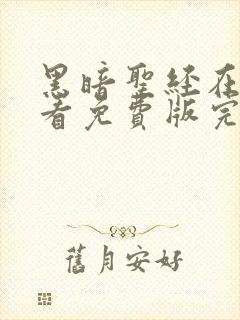 黑暗聖經在
看免費版完
舊月安好